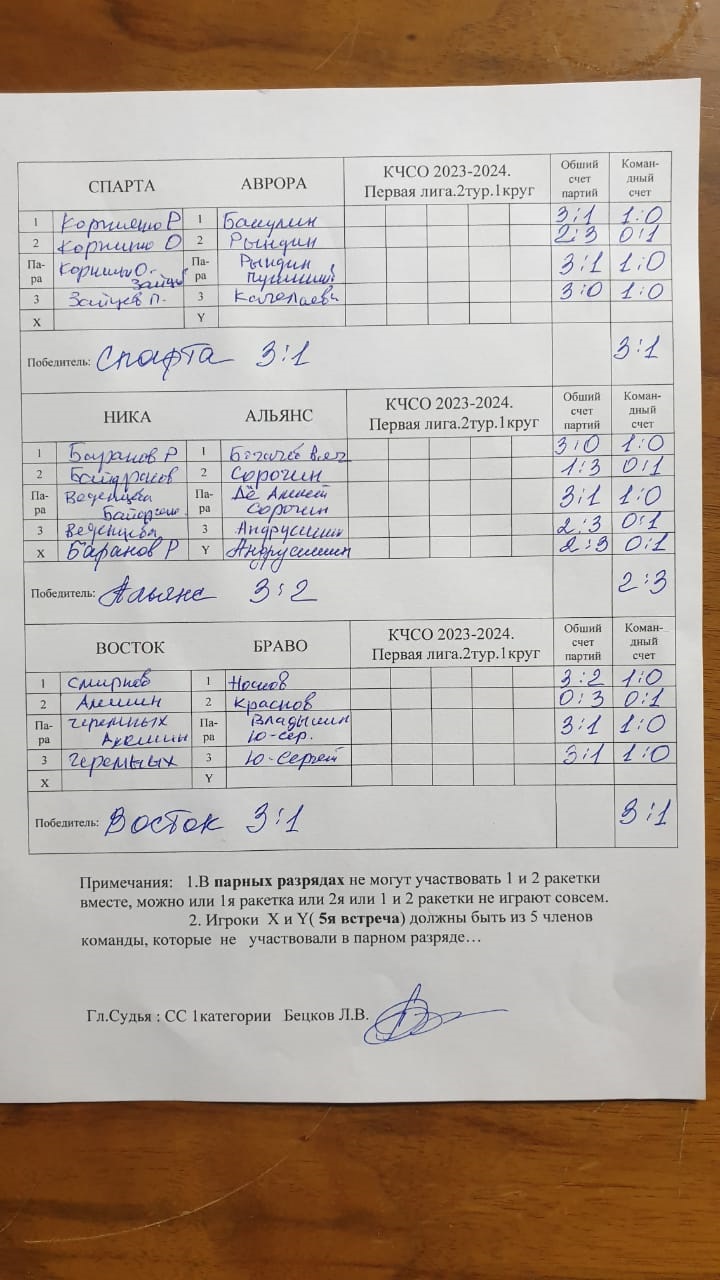 СПАРТА АВРОРА КЧСО 2023-2024. Первая лига.2тур.1круг Общий счет партий Коман-дный счет
1 Корниенко Р 1 Бакулин 3:1 1:0
2 2 Рындин 2:3 0:1
Па-ра Зайцев Па-ра Рындин 3:1 1:0
3 Зайцев П. 3 3:0 1:0
X Y
Победитель: Спарта 3:1 3:1
НИКА АЛЬЯНС КЧСО 2023-2024. Первая лига.2тур.1круг Общий счет партий Коман-дный счет
1 Баранов Р 1 3:0 1:0
2 2 Сорочин 1:3 0:1
Па-ра Па-ра Сорочин 3:1 1:0
3 3 Андрусишин 2:3 0:1
X Баранов Р Y Андрусишин 2:3 0:1
Победитель: Альянс 3:2 2:3
ВОСТОК БРАВО КЧСО 2023-2024. Первая лига.2тур.1круг Общий счет партий Коман-дный счет
1 Смирнов 1 Носков 3:2 1:0
2 2 Краснов 0:3 0:1
Па-ра Черемных Па-ра Владыкин Ю-Сер. 3:1 1:0
3 Черемных 3 Ю-Сергей 3:1 1:0
X Y
Победитель: Восток 3:1 3:1
Примечания: 1.В парных разрядах не могут участвовать 1 и 2 ракетки
вместе, можно или 1я ракетка или 2я или 1 и 2 ракетки не играют совсем.
2. Игроки X и Y( 5я встреча) должны быть из 5 членов
команды, которые не участвовали в парном разряде…
Гл.Судья : СС 1категории Бецков Л.В.